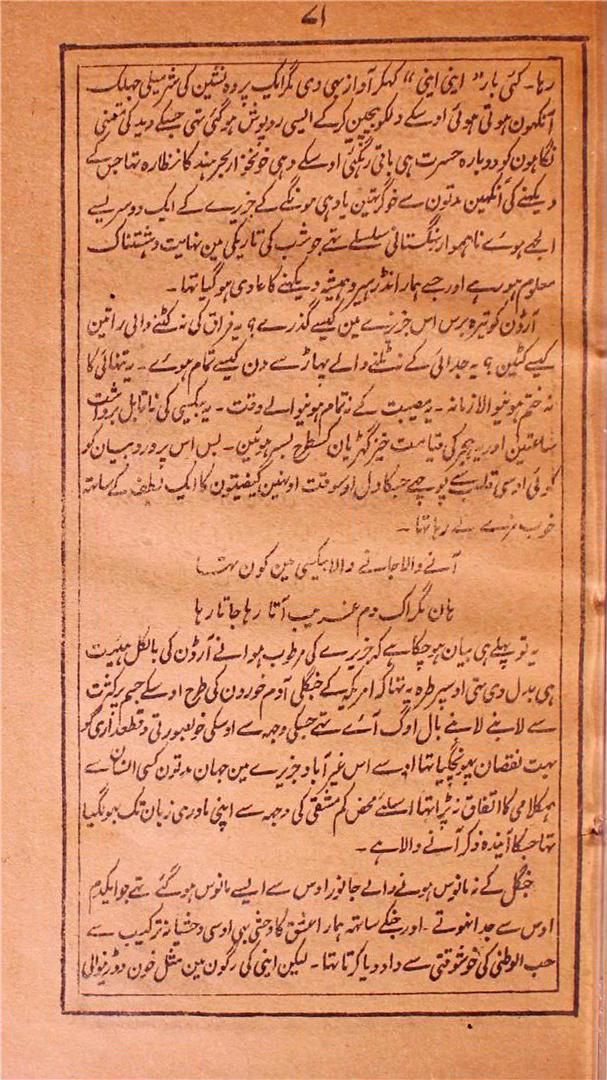 ۷۱
رہا۔ کئی بار "اینی اینی" کہکر آواز بھی دی مگر ایک پردہ نشین کی شرمیلی جھلک
آنکھون ہوتی ہوئی اوسکے دلکو بیچین کرکے ایسی روپوش ہوگئی تھی جسکے دید کی متمنی
نگاہون کو دوبارہ حسرت ہی باقی رہگئی اوسکے وہی خونخوار بحر ہند کا نظارہ تھا جس کے
دیکھنے کی آنکھین مدتون سے خوگر تہین یا وہی مونگے کے جزیرے کے ایک دوسریسے
الجھے ہوئے ناہموار سنگستانی سلسلے تھے جو شب کی تاریکی مین نہایت دہشتناک
معلوم ہورہے اور جسے ہمارا نڈر ہیرو ہمیشہ دیکھنے کا عادی ہوگیا تھا۔
آرڈن کو تیرہ برس اس جزیرے مین کیسے گذرے؟ یہ فراق کی نہ کٹنے والی راتین
کیسے کٹین؟ یہ جدائی کے نہ ٹلنے والے پہاڑ سے دن کیسے تمام ہوئے۔ یہ تنہائی کا
نہ ختم ہونیوالا زمانہ۔ یہ مصیبت کے نہ تمام ہونیوالے وقت۔ یہ بیکسی کی ناقابل برداشت
ساعتین اور یہ ہجر کی قیامت خیز گھڑیان کسطرح بسر ہوئین۔ بس اس پر درد بیان کو
کوئی اوسی قلب سے پوچھے جسکا دل اوسوقت اونہین کیفیتون کا ایک لطف کے ساتھ
خوب مزے لے رہا تھا۔
آنے والا جانے والا بیکسی مین کون تھا
ہان مگر اک دم غریب آتا رہا جاتا رہا
یہ تو پہلے ہی بیان ہوچکا ہے کہ جزیرے کی مرطوب ہوا نے آرڈن کی بالکل ہیئت
ہی بدل دی تھی اوسپر طرہ یہ تھا کہ امریکہ کے جنگلی آدم خورون کی طرح اوسکے جسم پر کثرت
سے لانبے لانبے بال اوگ آئے تھے جسکی وجہ سے اوسکی خوبصورتی و قطعداری کو
بہت نقصان پہونچگیا تھا اوسے اس غیر آباد جزیرے مین جہان مدتون کسی انسان سے
ہمکلامی کا اتفاق نہ پڑا تھا اسلئے محض کم مشقی کی وجہ سے اپنی مادری زبان تک بہولگیا
تھا جسکا آیندہ ذکر آنے والا ہے۔
جنگل کے نہ مانوس ہونے والے جانور اوس سے ایسے مانوس ہوگئے تھے جو ایکدم
اوس سے جدا نہوتے۔ اور جنکے ساتھ ہمارا عشق کا وحشی بھی اوسی وحشیانہ ترکیب سے
حب الوطنی کی خوشوقتی سے داد دیا کرتا تھا۔ لیکن اینی کی رگون مین مثل خون دوڑنیوالی